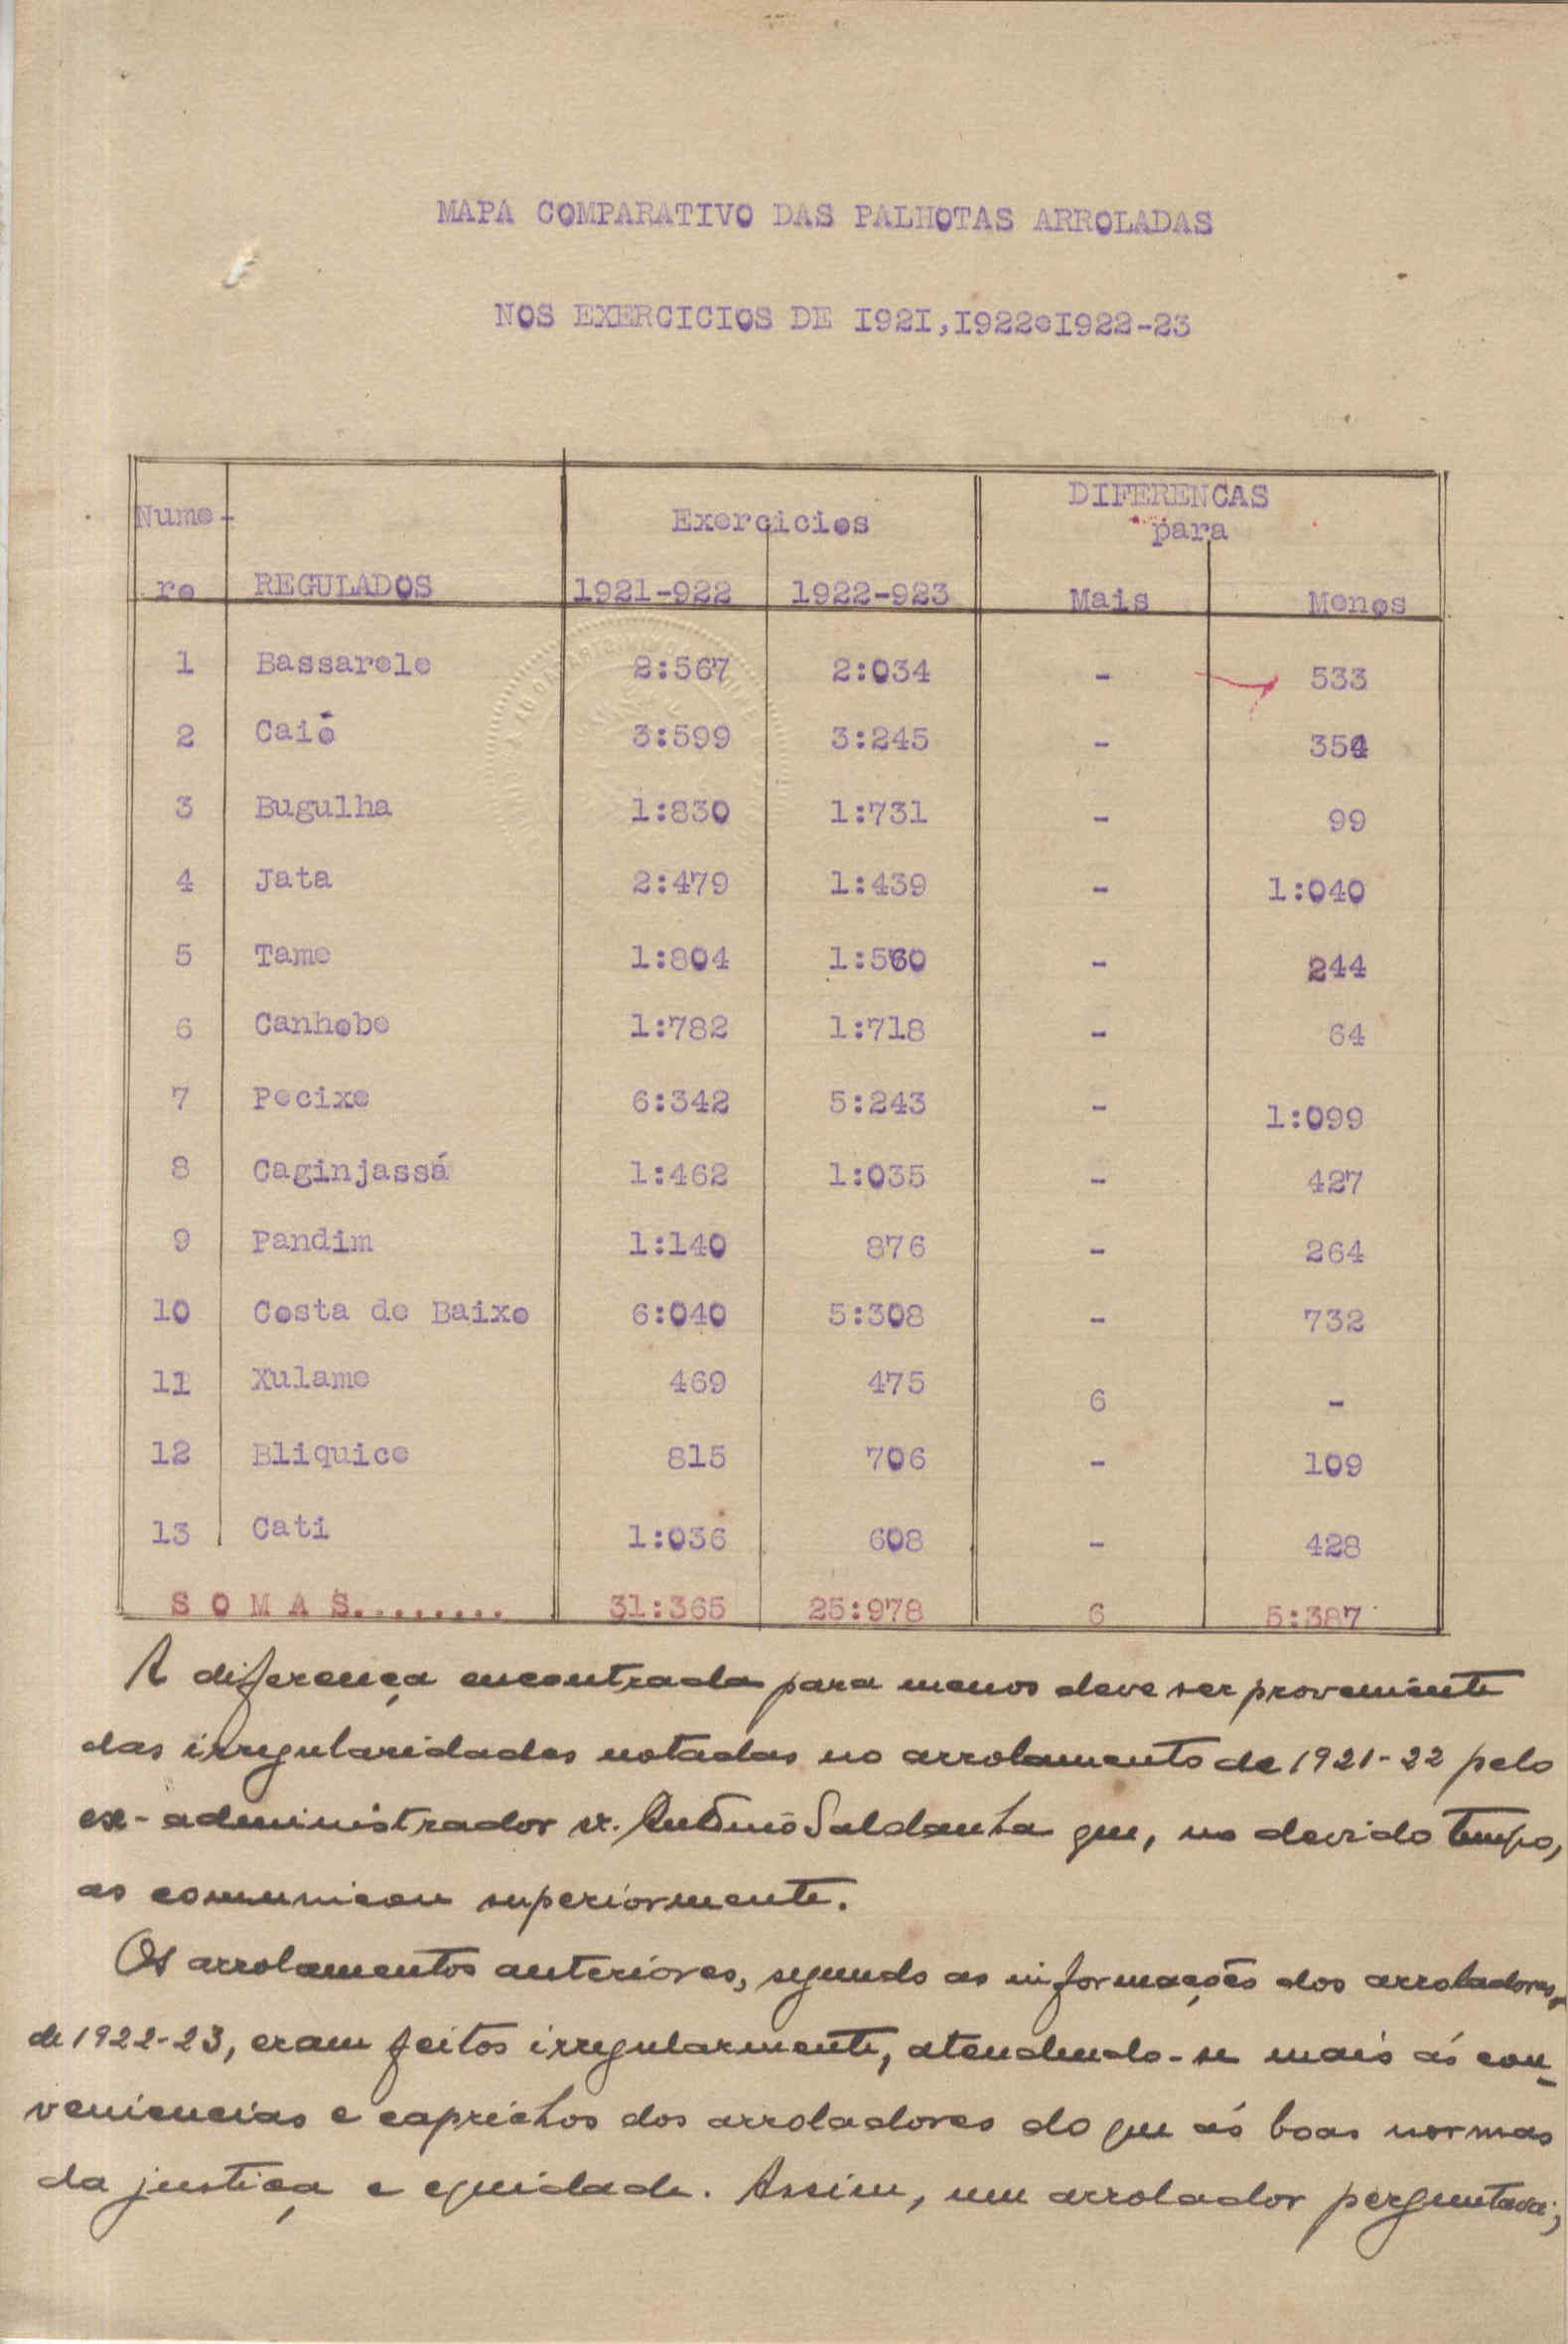 MAPA COMPARATIVO DAS PALHOTAS ARROLADAS
NOS EXERCICIOS DE I92I,I922eI922-23
Nume- Exercicios DIFERENCAS
para
ro REGULADOS 1921-922 1922-923 Mais Menos
1 Bassarele 2:567 2:034 - 533
2 Caió 3:599 3:245 - 354
3 Bugulha 1:830 1:731 - 99
4 Jata 2:479 1:439 - 1:040
5 Tame 1:804 1:560 - 244
6 Canhobe 1:782 1:718 - 64
7 Pecixe 6:342 5:243 - 1:099
8 Caginjassá 1:462 1:035 - 427
9 Pandim 1:140 876 - 264
10 Costa de Baixo 6:040 5:308 - 732
11 Xulame 469 475 6 -
12 Bliquice 815 706 - 109
13 Cati 1:036 608 - 428
S O M A S........ 31:365 25:978 6 5:387
A diferença encontrada para menos deve ser proveniente
das irregularidades notadas no arrolamento de 1921-22 pelo
ex-administrador sr. António Saldanha que, no devido tempo,
as comunicou superiormente.
Os arrolamentos anteriores, segundo as informações dos arroladores
de 1922-23, eram feitos irregularmente, atendendo-se mais ás con-
veniencias e caprichos dos arroladores do que ás boas normas
da justiça e equidade. Assim, um arrolador perguntava;